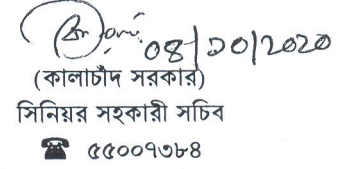 ০৪/১০/২০২০
(কালাচাঁদ সরকার)
সিনিয়র সহকারী সচিব
☎ ৫৫০০৭৩৮৪